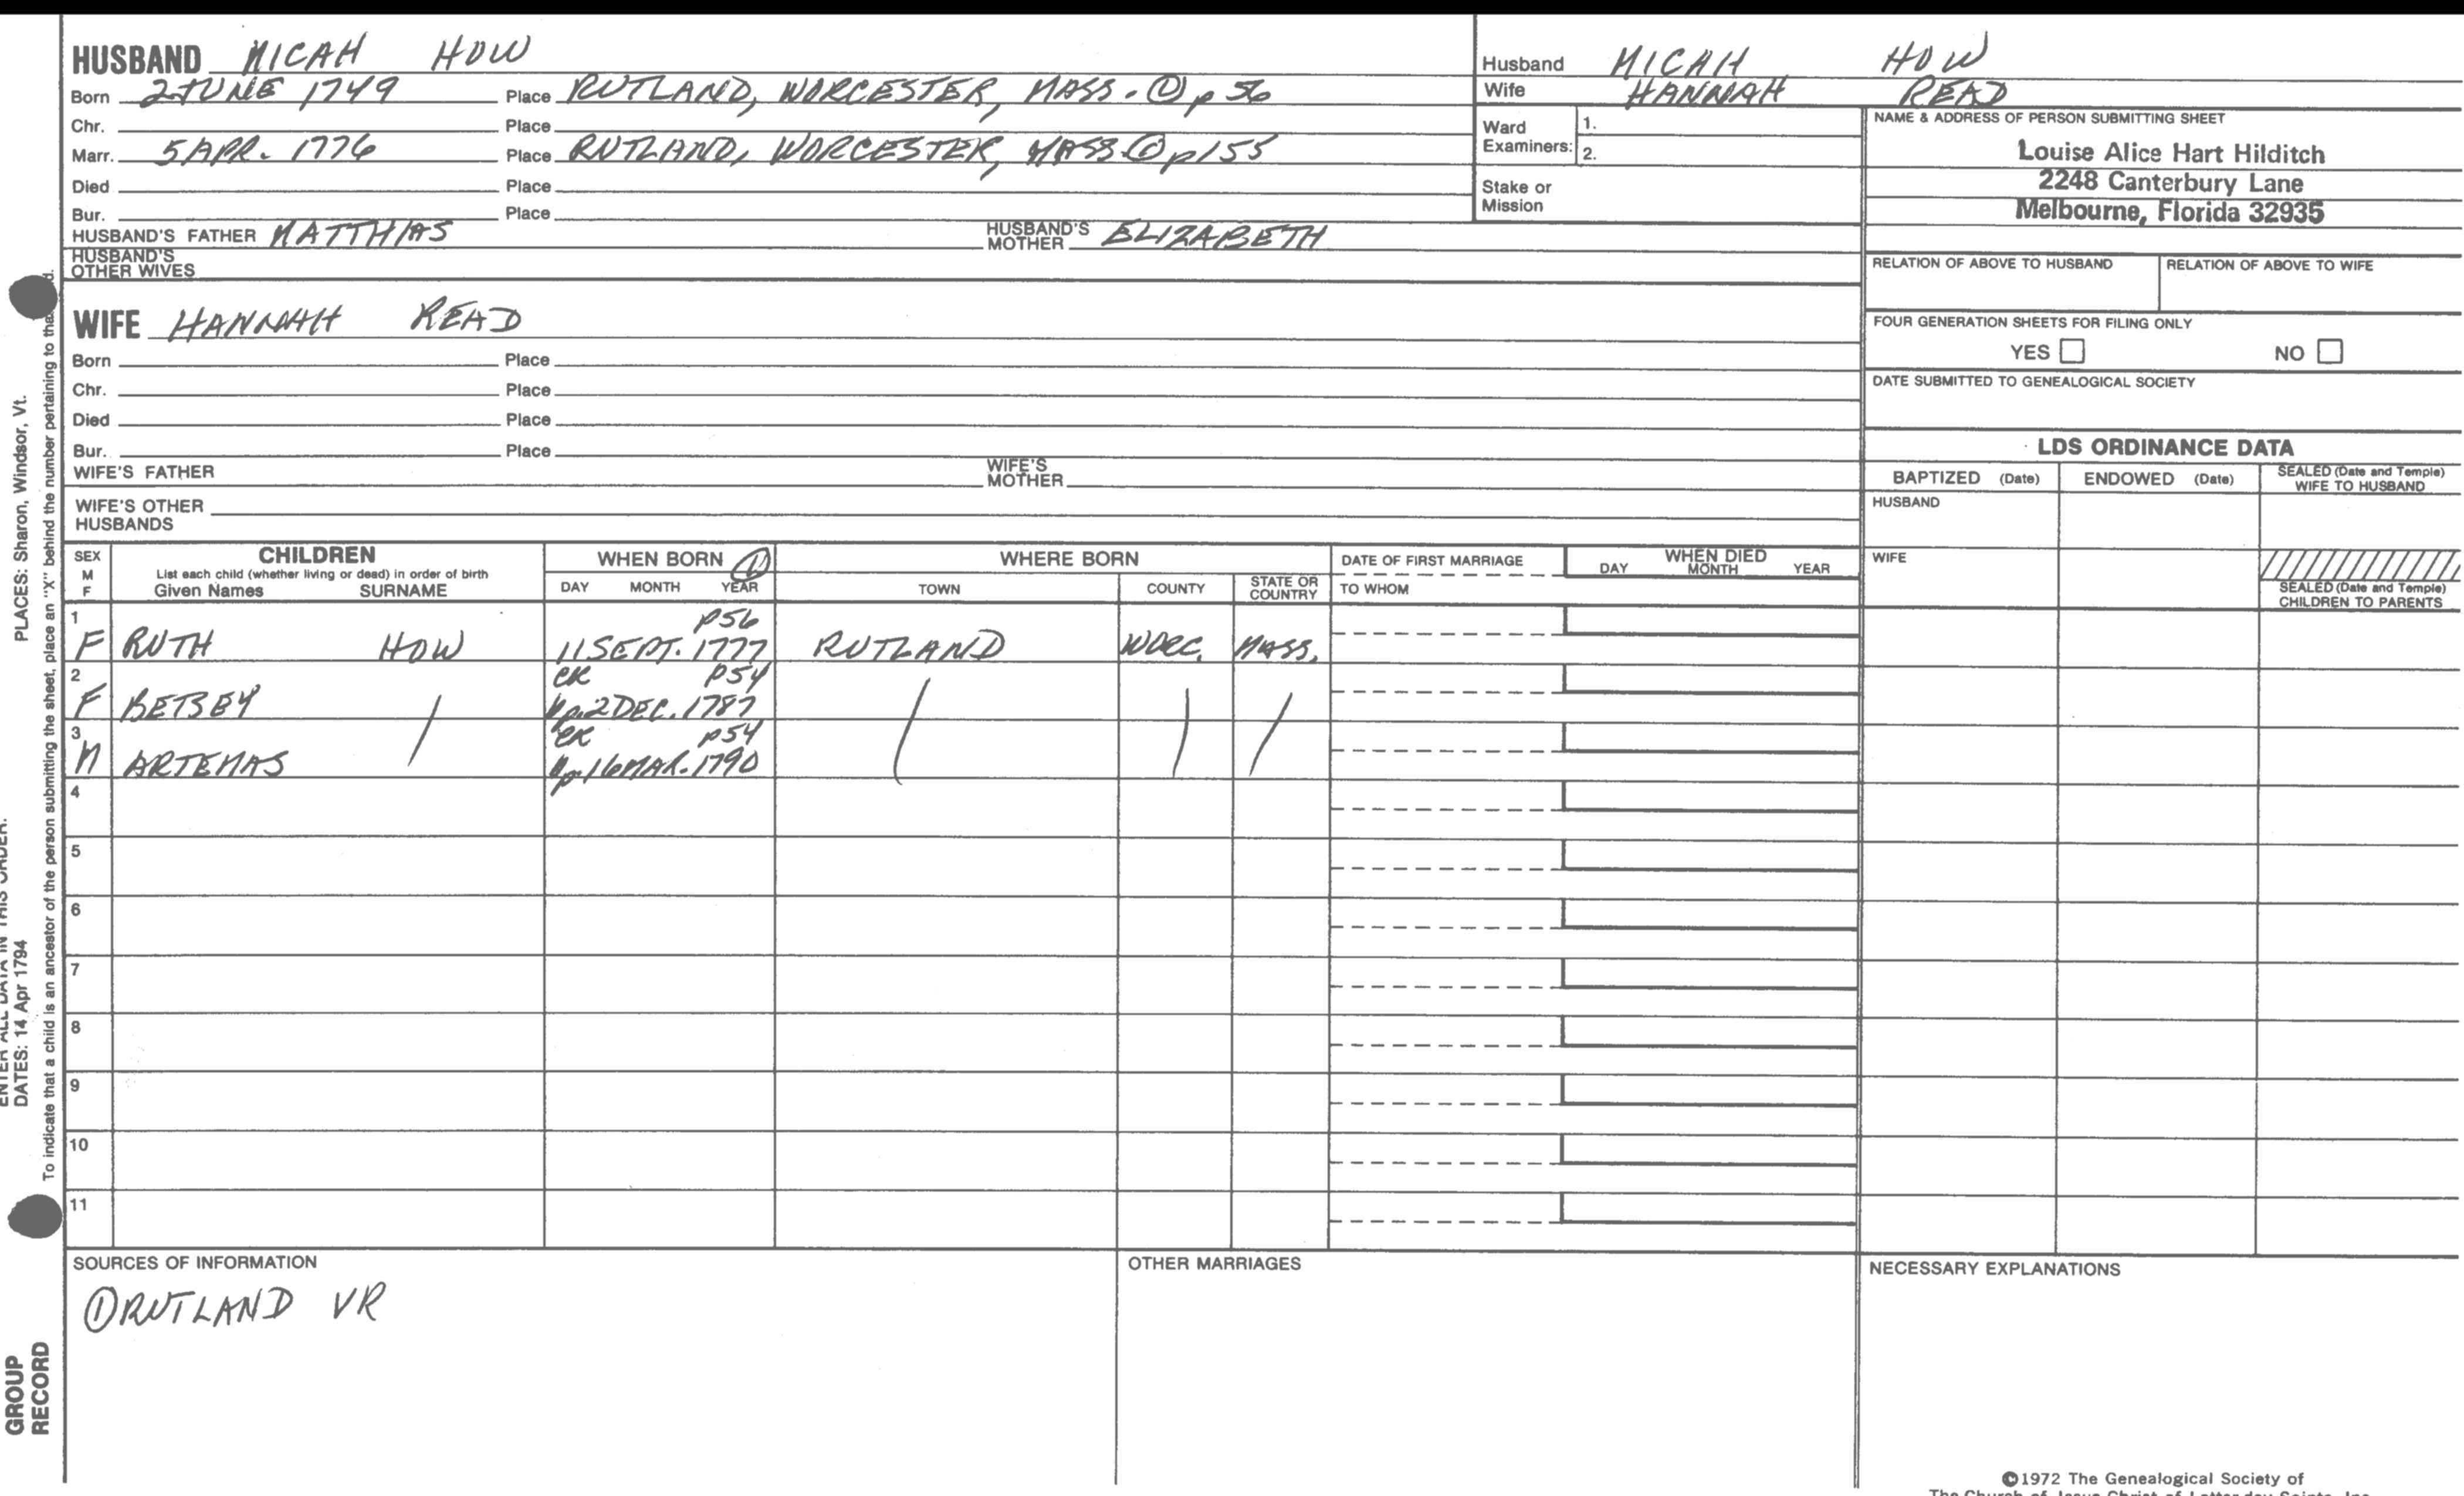 HUSBAND MICAH HOW
Born 2 JUNE 1749 Place RUTLAND, WORCESTER, MASS. ① p 56
Chr. Place
Marr. 5 APR. 1776 Place RUTLAND, WORCESTER, MASS. ① p155
Died Place
Bur. Place
HUSBAND'S FATHER MATTHIAS HUSBAND'S MOTHER ELIZABETH
HUSBAND'S OTHER WIVES
WIFE HANNAH READ
Born Place
Chr. Place
Died Place
Bur. Place
WIFE'S FATHER WIFE'S MOTHER
WIFE'S OTHER HUSBANDS
Husband MICAH HOW
Wife HANNAH READ
Ward Examiners: 1.
2.
Stake or Mission
NAME & ADDRESS OF PERSON SUBMITTING SHEET
Louise Alice Hart Hilditch
2248 Canterbury Lane
Melbourne, Florida 32935
RELATION OF ABOVE TO HUSBAND RELATION OF ABOVE TO WIFE
FOUR GENERATION SHEETS FOR FILING ONLY
YES NO
DATE SUBMITTED TO GENEALOGICAL SOCIETY
LDS ORDINANCE DATA
BAPTIZED (Date) ENDOWED (Date) SEALED (Date and Temple) WIFE TO HUSBAND
HUSBAND
WIFE
SEALED (Date and Temple) CHILDREN TO PARENTS
SEX M F CHILDREN WHEN BORN ① WHERE BORN DATE OF FIRST MARRIAGE WHEN DIED
List each child (whether living or dead) in order of birth
Given Names SURNAME DAY MONTH YEAR TOWN COUNTY STATE OR COUNTRY TO WHOM DAY MONTH YEAR
1 p56
F RUTH HOW 11 SEPT. 1777 RUTLAND WORC. MASS.
2 CR p54
F BETSEY / bp. 2 DEC. 1787 / / /
3 CR p54
M ARTEMAS bp. 16 MAR. 1790
4
5
6
7
8
9
10
11
SOURCES OF INFORMATION
① RUTLAND VR
OTHER MARRIAGES
NECESSARY EXPLANATIONS
©1972 The Genealogical Society of
The Church of Jesus Christ of Latter-day Saints, Inc.
ENTER ALL DATA IN THIS ORDER:
DATES: 14 Apr 1794 PLACES: Sharon, Windsor, Vt.
To indicate that a child is an ancestor of the person submitting the sheet, place an "X" behind the number pertaining to that
GROUP
RECORD